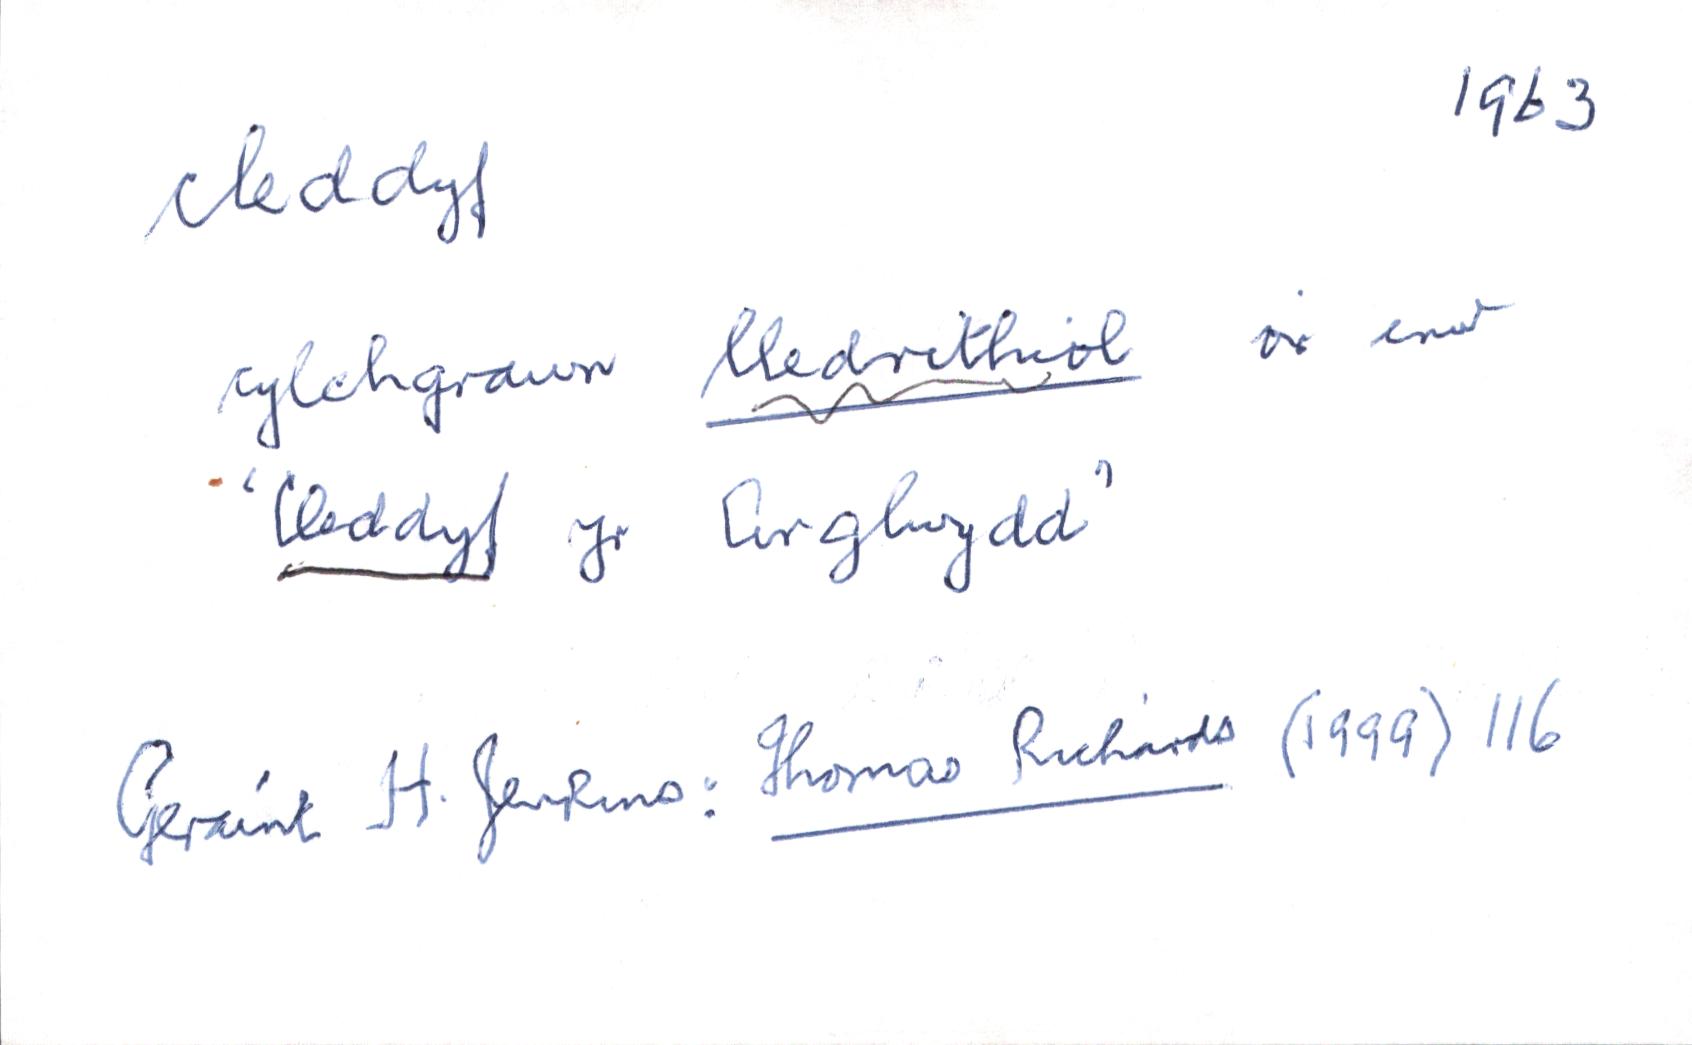 1963
cleddyf
cylchgrawn lledrithiol o'r enw
'Cleddyf yr Arglwydd'
Geraint H. Jenkins: Thomas Richards (1999) 116